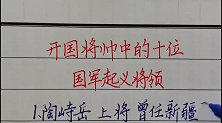 开国将帅中的十位
国军起义将领
1.陶峙岳 上将 曾任新疆